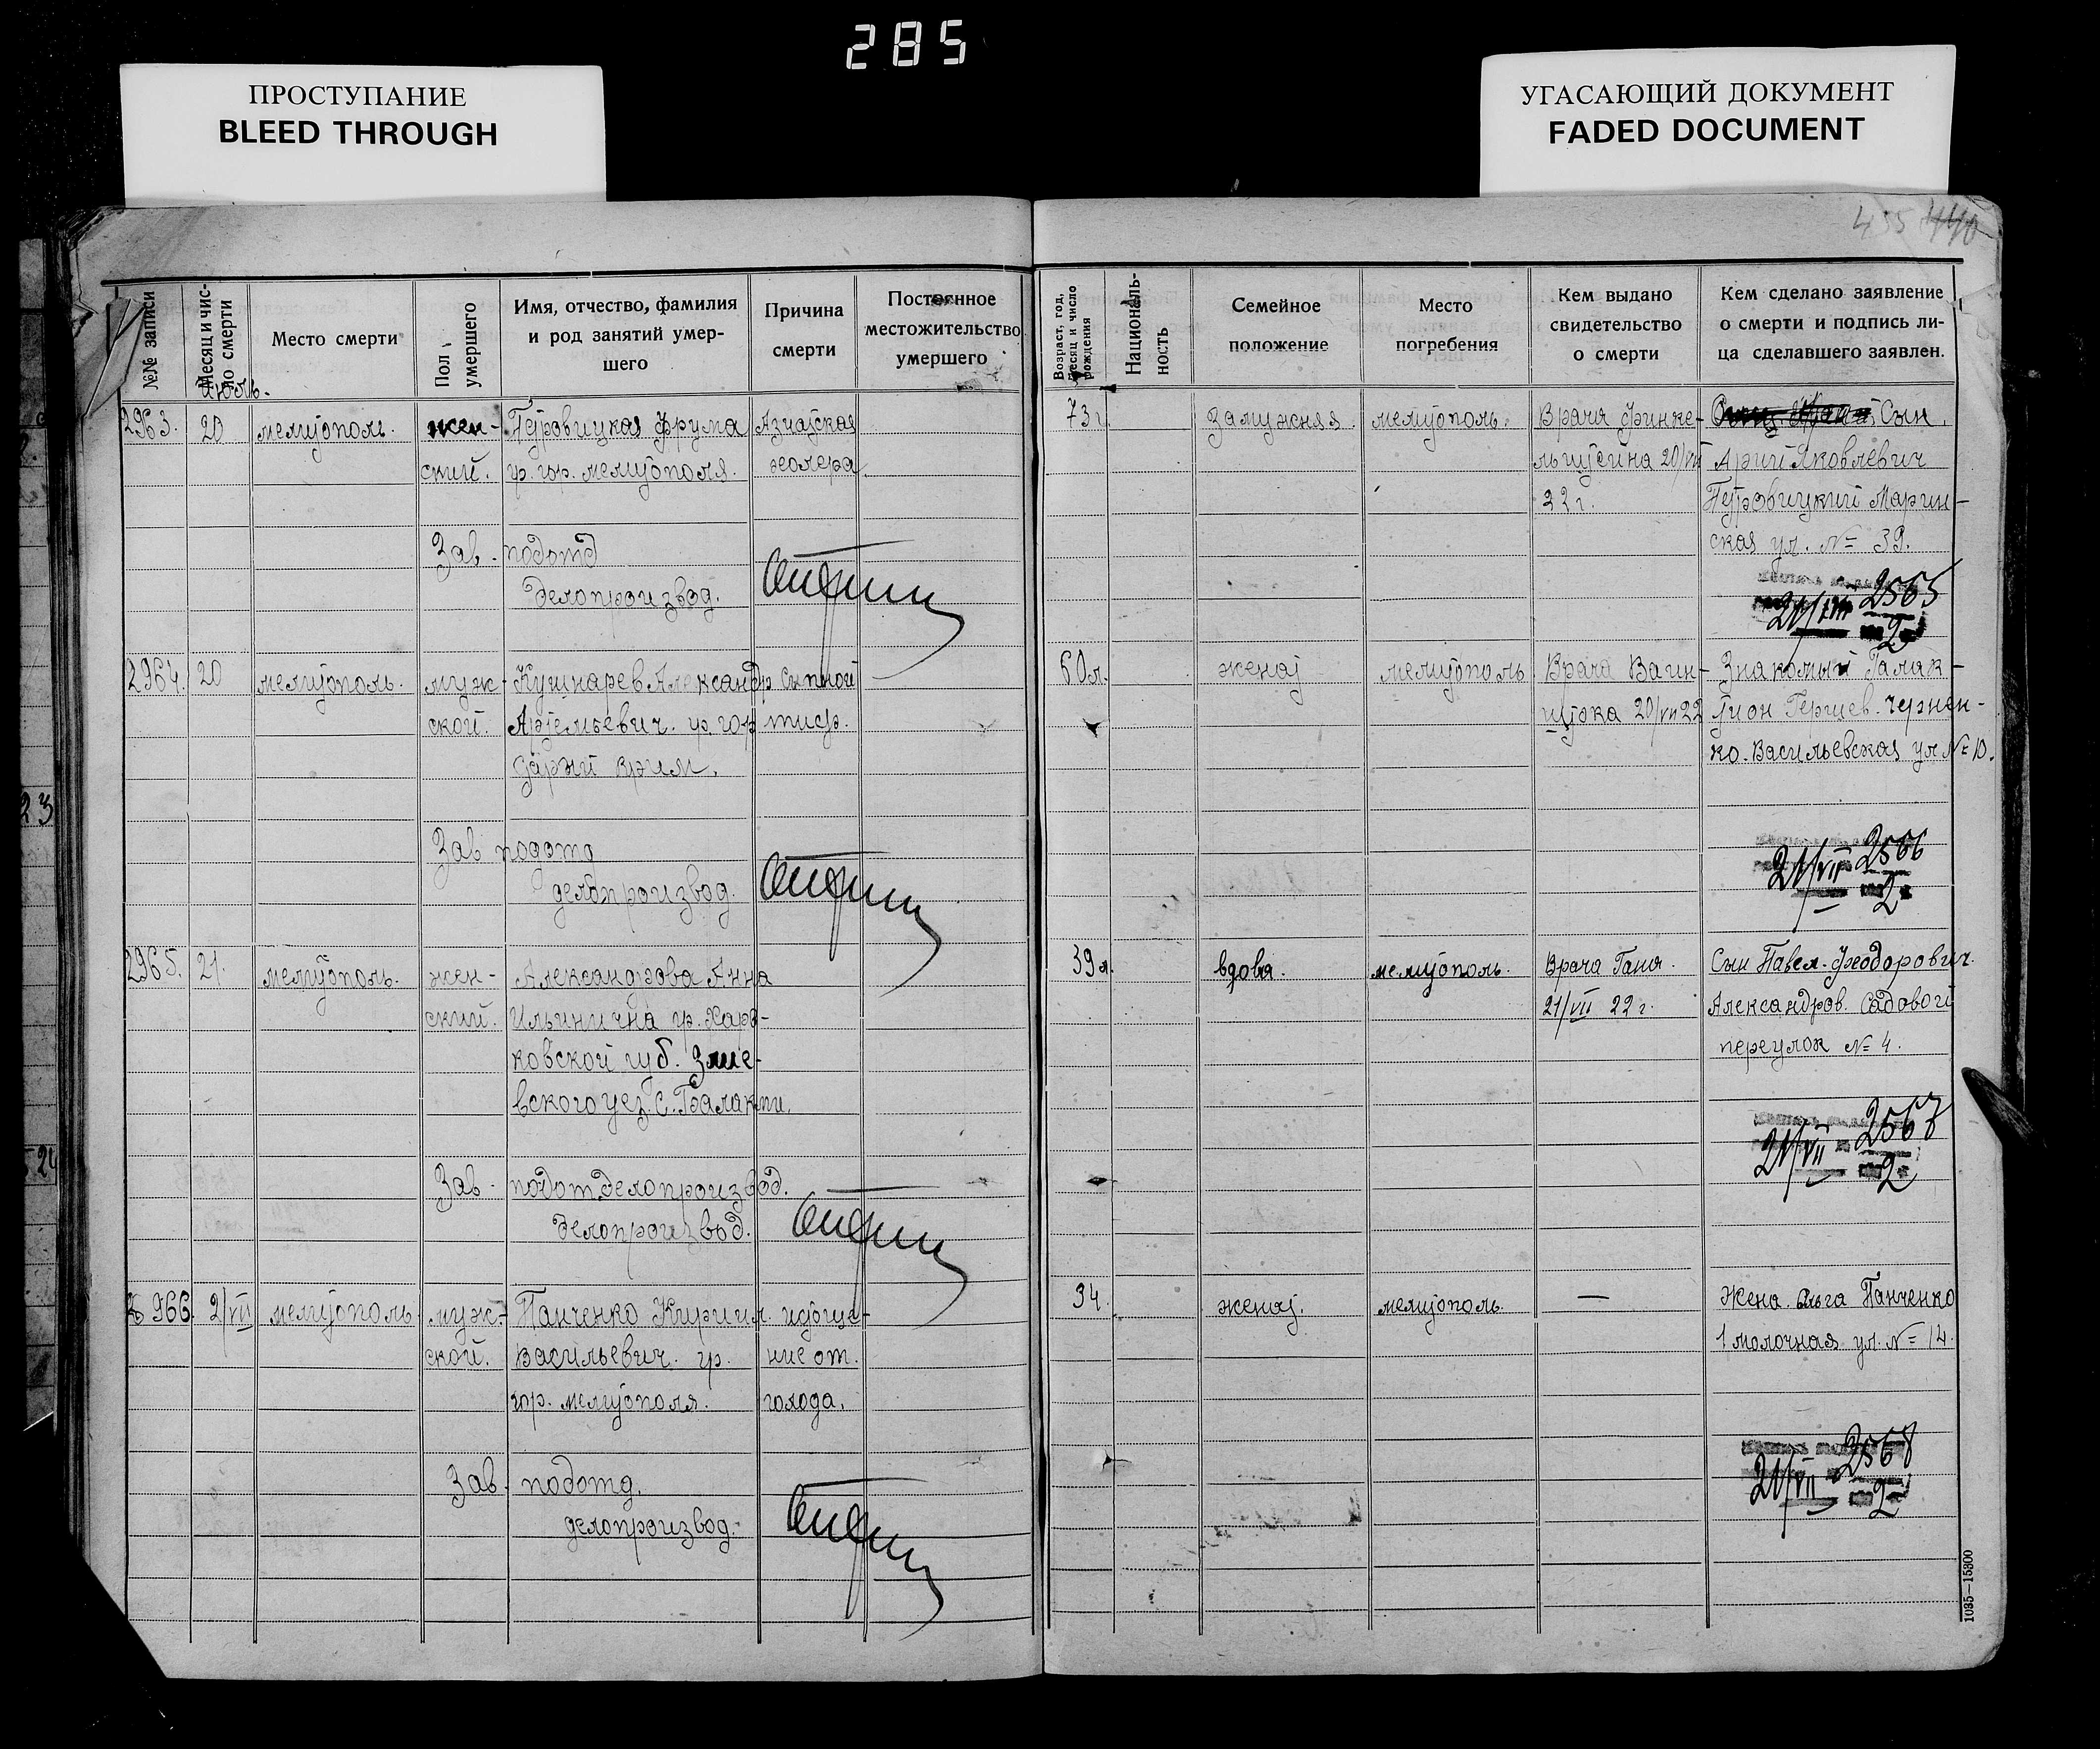 285
ПРОСТУПАНИЕ
BLEED THROUGH
УГАСАЮЩИЙ ДОКУМЕНТ
FADED DOCUMENT
440
№№ записи
Месяц и чис-
ло смерти
Место смерти
Пол
умершего
Имя, отчество, фамилия
и род занятий умер-
шего
Причина
смерти
Постоянное
местожительство
умершего
Возраст, год,
месяц и число
рождения
Националь-
ность
Семейное
положение
Место
погребения
Кем выдано
свидетельство
о смерти
Кем сделано заявление
о смерти и подпись ли-
ца сделавшего заявлен.
Июль.
2963. 20 мелитополь. жен- Петровицкая Фрума Азиатская 73 г. Замужняя. мелитополь. Врача Финке- Сын.
ский. гр. гор. мелитополя. холера льштейна 20/VII Арий Яковлевич
22 г. Петровицкий Марин-
ская ул. № 39.
Зав. подотд
Делопроизвод.
21/VII 2565
2
2964. 20 мелитополь. муж- Кушнарев Александр Сыпной 60 л. женат мелитополь Врача Вайн- Знакомый Галак-
ской. Артемьевич. гр. гор тиф. штока 20/VII 22 тион Чернен-
ко. Васильевская ул № 10.
Зав подотд
делопроизвод.
21/VII 2566
2
2965. 21. мелитополь. жен- Александрова Анна 39 л. вдова. мелитополь. Врача 
ский. Ильинична гр. Харь- 21/VII 22 г. Сын Павел Феодорович
ковской губ. Змие- Александров. Садовой
вского уез. С. Балаклеи. переулок № 4.
Зав. подот. Делопроизвод.
Делопроизвод.
21/VII 2567
2
2966. 21/VII мелитополь муж- Панченко Кирил. истоще- 34. женат. мелитополь. — Жена Ольга Панченко
ской. Васильевич. гр. ние от. 1 молочная ул. № 14.
гор. мелитополя. голода.
Зав. подотд.
делопроизвод.
21/VII 2568
2
1035—15300